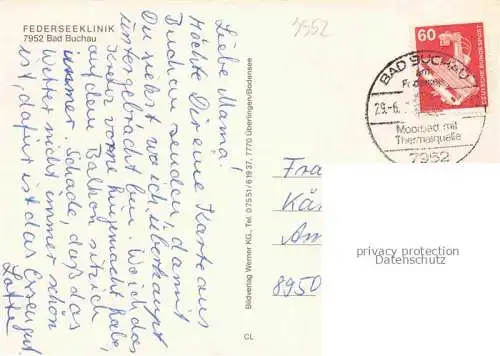 FEDERSEEKLINIK
7952 Bad Buchau
7952
Liebe Mama!
Möchte Dir eine Karte aus
Buchau senden, damit
Du siehst wo ich überhaupt
untergebracht bin. Wo ich das
Kreuz vorne hingemacht habe,
auf dem Balkon sitz ich
immer. Schade, daß das
Wetter nicht immer schön
ist, dafür ist das Essen gut.
Lotte
CL
Bildverlag Werner KG., Tel. 0 75 51/6 19 37, 7770 Überlingen/Bodensee
60
DEUTSCHE BUNDESPOST
BAD BUCHAU
am
Federsee
29.-6.
Moorbad mit
Thermalquelle
7952
Fra
Kä
Am
8950
privacy protection
Datenschutz